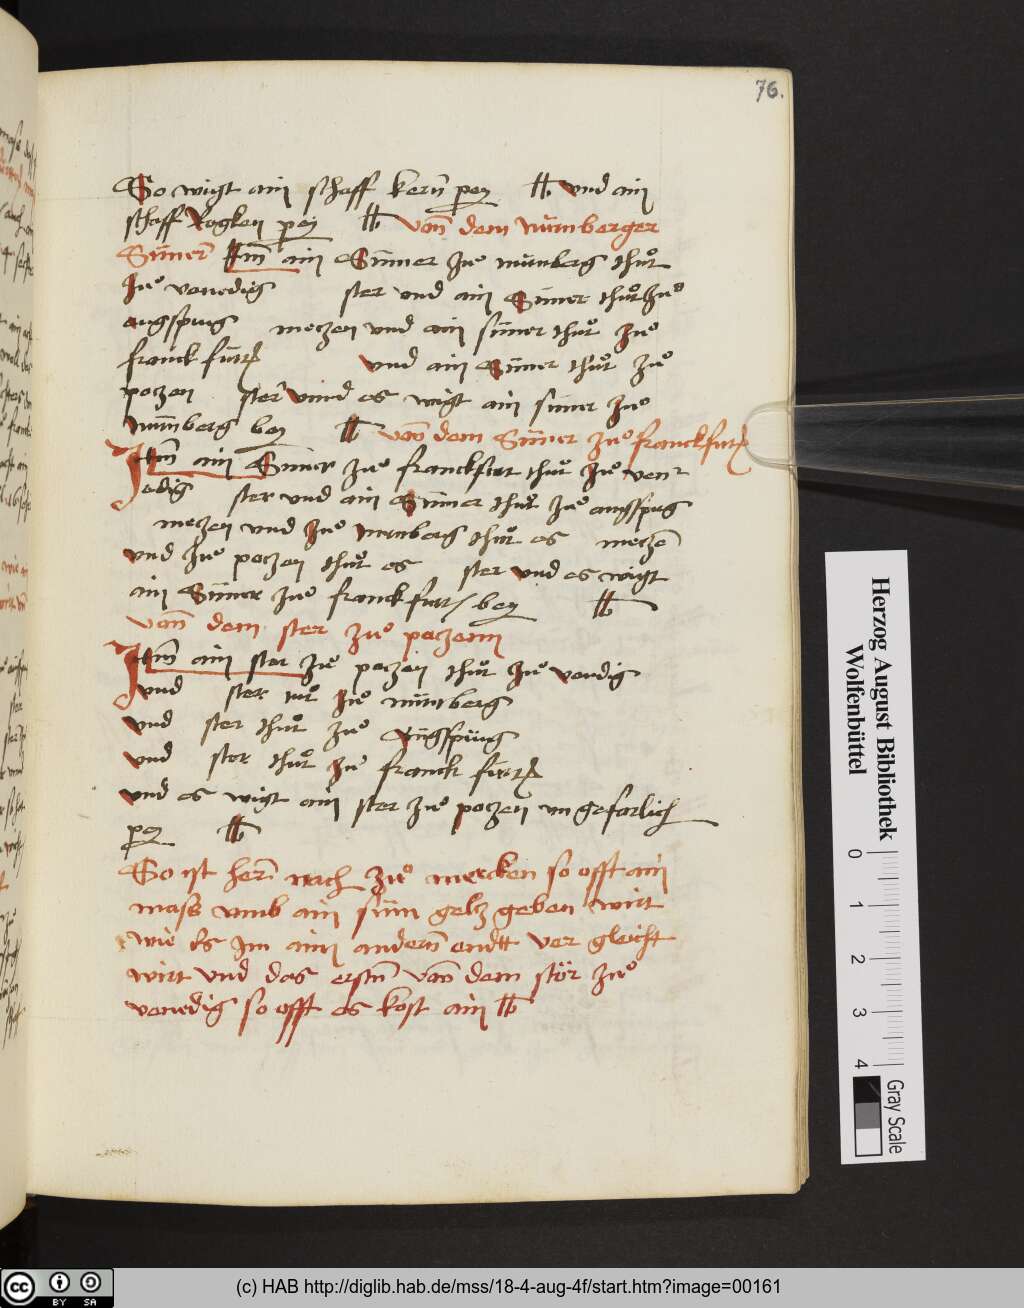 76.
So wigt ain schaff kern̄ pey ℔ vnd ain
schaff Rogken pey ℔ von̄ dem nürnberger
Sümer̄ Itm̄ ain Sümer zuͦ nürnberg thuͦt
zuͦ venedig ster vnd ain Sümer thuͦt zuͦ
augspurg meczen vnd ain sümer thuͦt zuͦ
franckfurt vnd ain Sümer thuͦt zuͦ
poczen ster vnnd es wigt ain sümer zuͦ
nürnberg bey ℔ von̄ dem Sümer zuͦ franckfurt
Itm̄ ain Sümer zuͦ franckfurt thuͦt zuͦ ven
edig ster vnd ain Sümer thuͦt zuͦ augspurg
meczen vnd zuͦ nurnberg thuͦt es meczē
vnd zuͦ poczen thuͦt es ster vnd es wigt
ain Sümer zuͦ franckfurt bey ℔
von̄ dem ster zuͦ poczenn
Itm̄ ain ster zuͦ poczen thuͦt zuͦ venedig
vnd ster tuͦt zuͦ nürnberg
vnd ster thuͦt zuͦ Augspurg
vnd ster thuͦt zuͦ franckfurt
vnd es wigt ain ster zuͦ poczen vngefarlich
pey ℔
So ist hern̄ nach zuͦ mercken so offt ain
mass vmb ain süm geltz geben wirt
wie es Im ainn andern̄ endtt ver gleicht
wirt vnd das erstn̄ von̄ dem stör zuͦ
venedig so offt es kost ain ℔
Herzog August Bibliothek
Wolfenbüttel
0 1 2 3 4
Gray Scale
cc BY SA
(c) HAB http://diglib.hab.de/mss/18-4-aug-4f/start.htm?image=00161